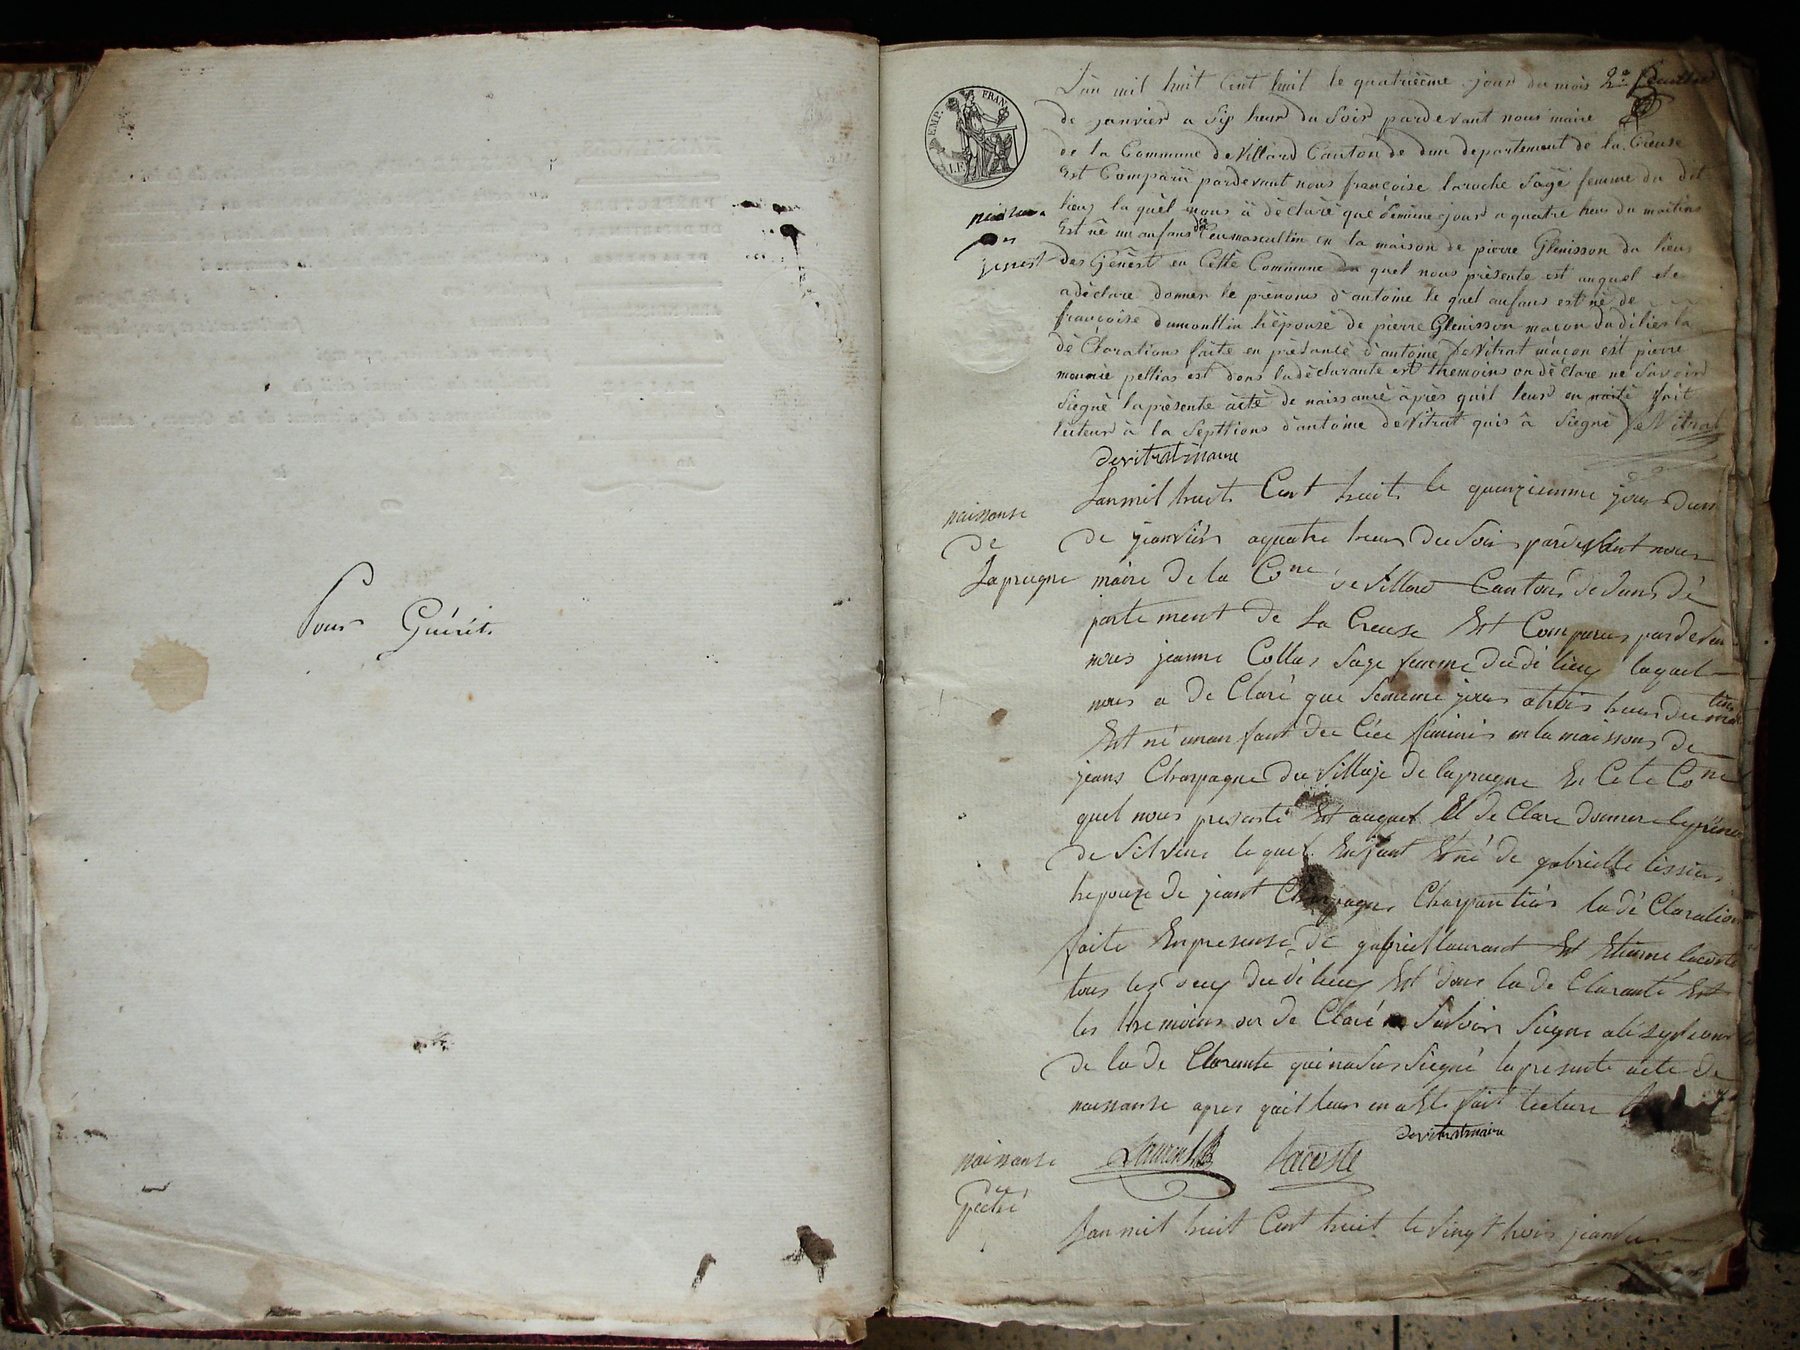 Pour Guéret
2e feuillet
EMP. FRAN.
Lan mil huit Cent huit le quatrième jour du mois
de janvier a six heur du soir pardevant nous maire
de la Commune de Villard Canton de dun departement de la Creuse
Est Comparü pardevant nous françoise laroche sage femme du dit
lieux laquel nous à déclaré que
Est né un anfans mascullin en la maison de pierre Glenisson du lieux
des Genêst en Cette Commune du quel nous présente est auquel ele
a déclare donner le prénoms d'antoine le quel anfans est né de
françoise dumoullin hépouse de pierre Glenisson maçon dudi lieu la
dé Clarations faite en présance d'antoine deVitrat maçon est pierre
est dons la déclarante est themoins on déclare ne savoir
siegné la présente acte de naissance après quil leur en fait
lecteur à la d'antoine deVitrat quis â siegné deVitrat
devitrat maire
jenest
naissanse
de
Laprugne
Lan mil huit Cent huit le quinziemme jour dum
de jeanvier aquatre heur du soir pardevant nous
maire de la Cone de Villard Canton de duns dé
partement de La Creuse Est Comparus pardevan
nous jeanne Collas sage femme du di lieux laquel
nous a de Claré que jour atrois heur du
Est né unanfant dee féminin en la maissons de
jeans Charpagne du Village de laprugne En Cete Cone
quel nous presante Est auquel El de Clare donner le prénon
de Silvine le quel Enfant Est né de gabrielle tissier
hepouze de jeant Charpagne Charpantier la dé Claration
faite En presense de gabriel laurant Est Etienne lacoste
tous les deux du di lieux Est dons la de Clarante Est
les themoins on de Claré savoir siegne
de la de Clarante qui na sus siegné la presente acte de
naissanse apres quil leur en a Eté fait lecture
devitrat maire
Laurent Lacoste
naissanse
de
Lan mil huit Cent huit le vingt trois jeanvier